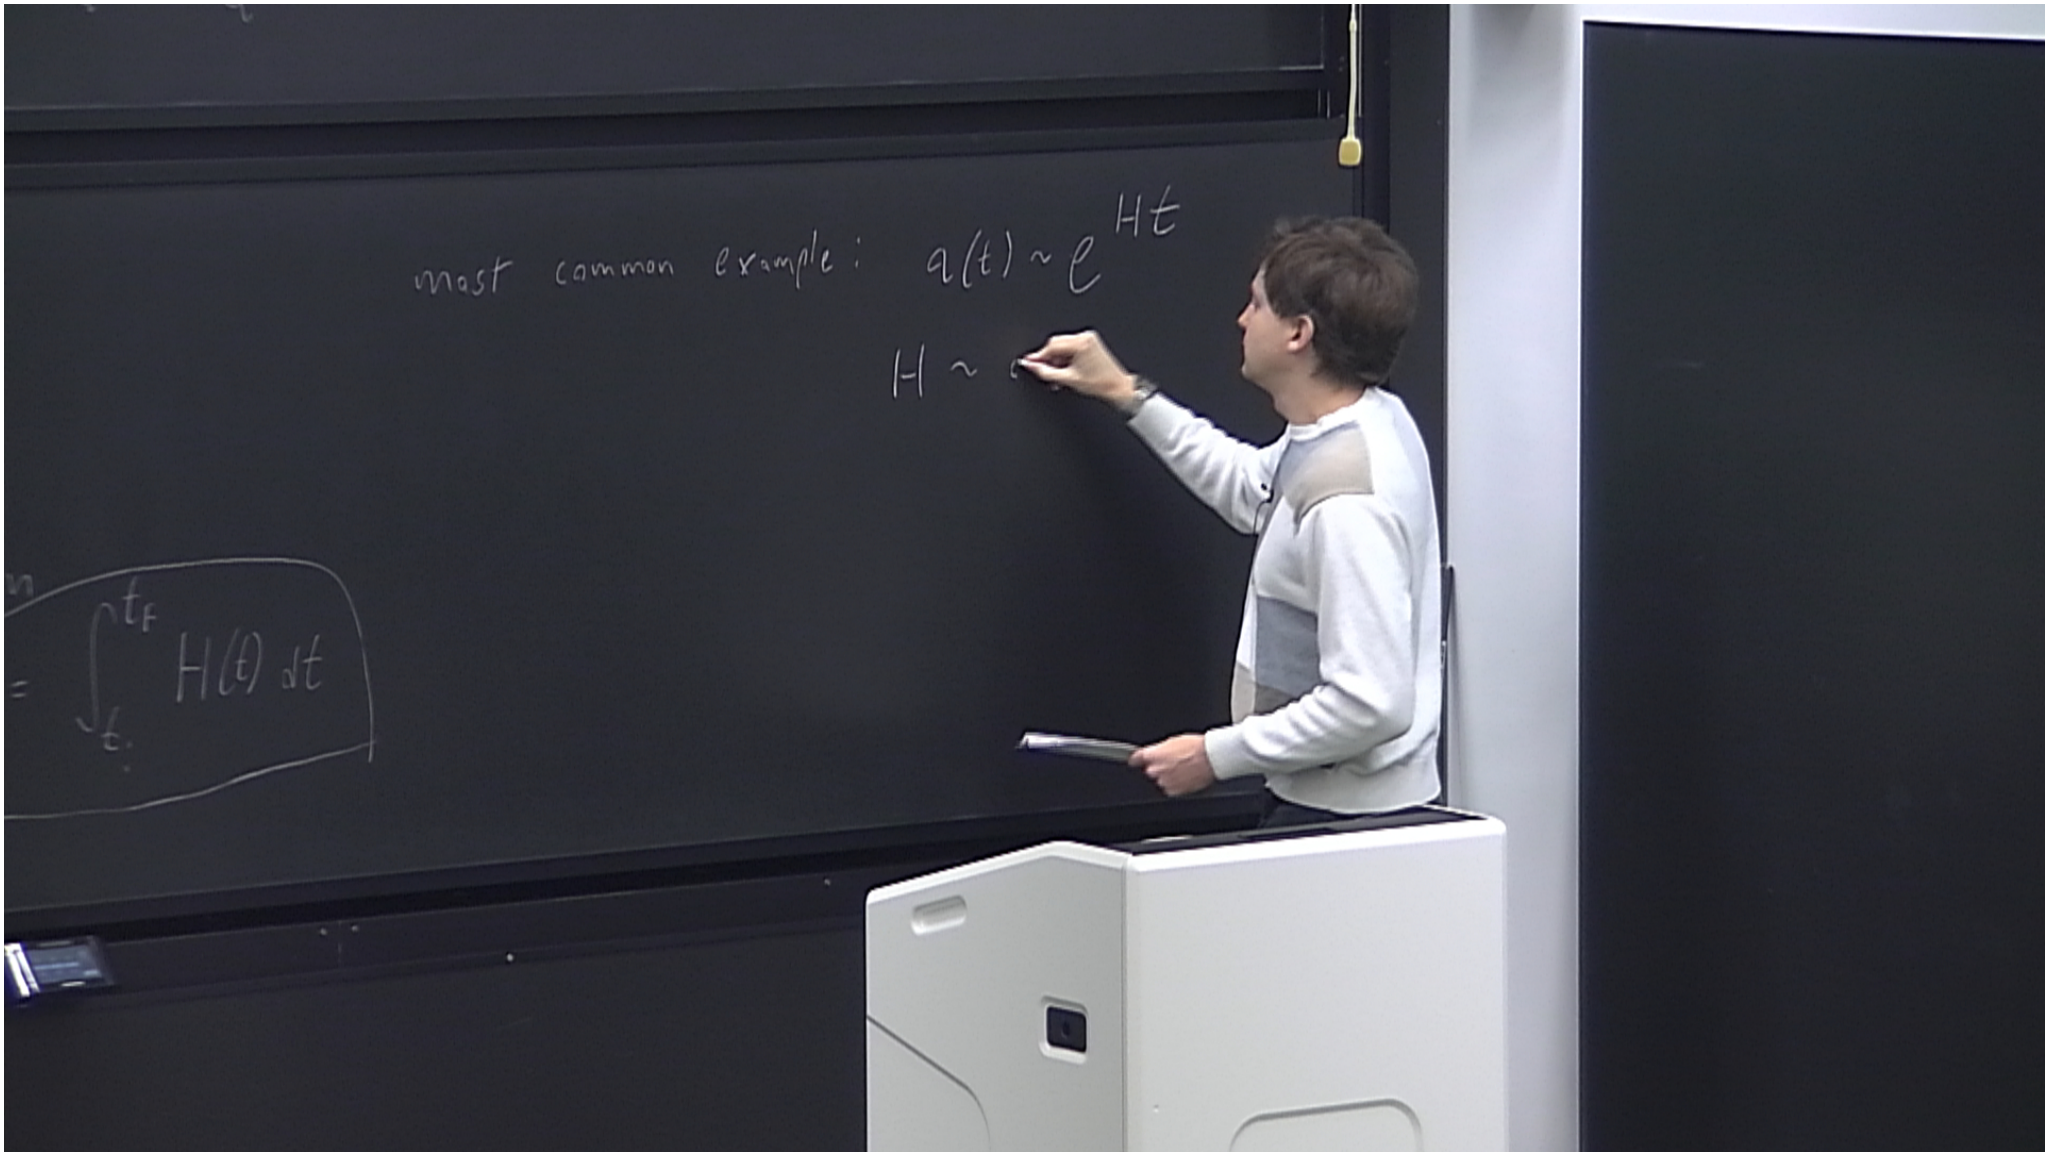 most common example: a(t) ~ e^{Ht}
H ~
= ∫_{t_i}^{t_F} H(t) dt